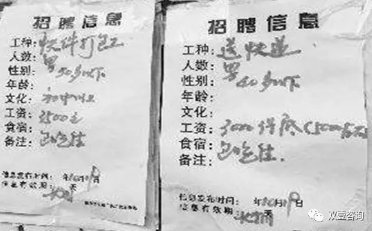 招聘信息
工种:快件打包工
人数:
性别:男40岁以下
年龄:
文化:初中以上
工资:2500元
食宿:包吃住
备注:
信息发布时间: 年 月 日
信息有效期: 天
招聘信息
工种:送快递
人数:
性别:男
年龄:40岁以下
文化:
工资:3000保底(5000左右)
食宿:包吃住.
备注:
信息发布时间: 年 月 日
信息有效期: 天
双壹咨询